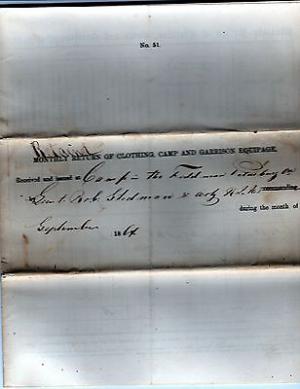 No. 51.
MONTHLY RETURN OF CLOTHING, CAMP AND GARRISON EQUIPAGE,
Received and issued at Camp in the Field near
Lieut Rob Stedman &
commanding
during the month of
September 1864